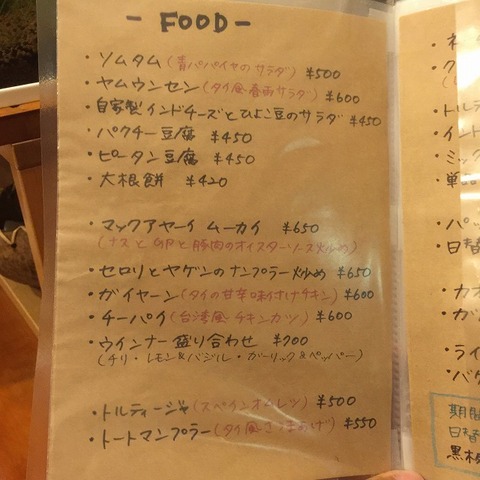 - FOOD -
・ソムタム(青パパイヤのサラダ) ¥500
・ヤムウンセン(タイ風春雨サラダ) ¥600
・自家製インドチーズとひよこ豆のサラダ ¥450
・パクチー豆腐 ¥450
・ピータン豆腐 ¥450
・大根餅 ¥420
・マックアヤーイ ムーカイ ¥650
(ナスと卵と豚肉のオイスターソース炒め)
・セロリとヤゲンのナンプラー炒め ¥650
・ガイヤーン(タイの甘辛味付けチキン) ¥600
・チーパイ(台湾風チキンカツ) ¥600
・ウインナー盛り合わせ ¥700
(チリ・レモン&バジル・ガーリック&ペッパー)
・トルティージャ(スペインオムレツ) ¥500
・トートマンプラー(タイ風さつまあげ) ¥550
・トルティ
・インド
・ミッ
・単品
・パッ
・日替
・カオ
・ガパ
・ライ
・バケ
期間
日替
黒板